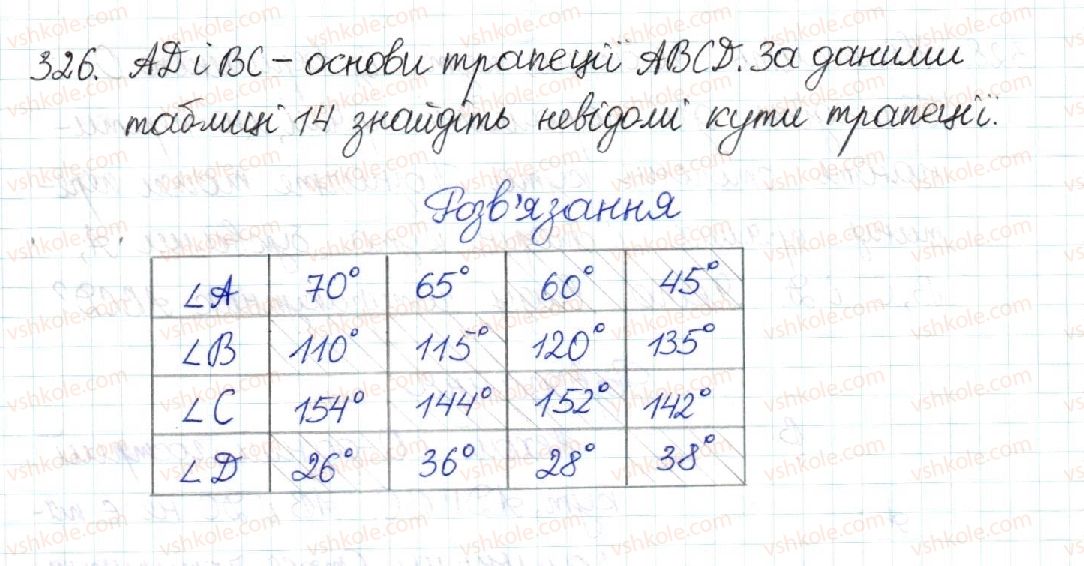 326. AD і BC – основи трапеції ABCD. За даними
таблиці 14 знайдіть невідомі кути трапеції.
Розв'язання
∠A 70° 65° 60° 45°
∠B 110° 115° 120° 135°
∠C 154° 144° 152° 142°
∠D 26° 36° 28° 38°
vshkole.com